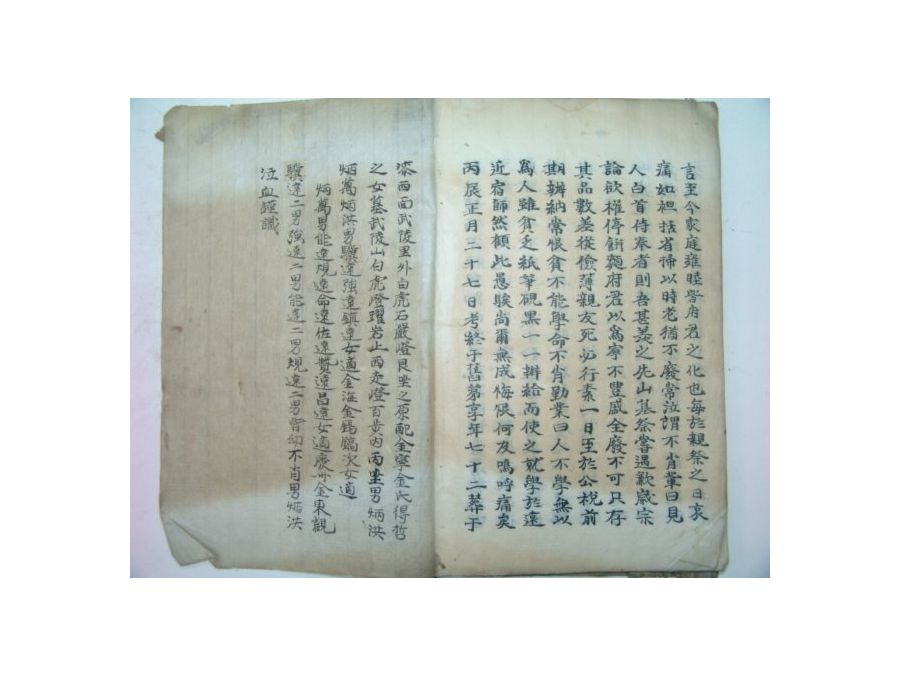 言至今家庭雍睦皆府君之化也每於親祭之日哀
痛如袒括省掃以時老猶不廢常泣謂不肖輩曰見
人白首侍奉者則吾甚羨之先山墓祭嘗遇歉歲宗
論欲權停餠麵府君以爲寧不豊戚全廢不可只存
其品數差從儉薄親友死必行素一日至於公稅前
期辦納常恨貧不能學命不肖勤業曰人不學無以
爲人雖貧乏紙筆硯黑一一辦給而使之就學於遠
近宿師然顧此愚騃尚爾無成悔恨何及嗚呼痛矣
丙辰正月二十七日考終于舊第享年七十二葬于
漆西面武陵里外白虎石嚴嶝艮坐之原配金寧金氏得哲
之女墓武陵山白虎嶝躍岩上西走嶝百步內丙坐男炳洪
炳萬炳洪男驥遠強遠鎭遠女適金海金錫鎬次女適
炳萬男能遠規遠命遠佐遠贊遠昌遠女適慶州金東觀
驥遠二男強遠二男能遠二男規遠二男皆幼不肖男炳洪
泣血謹識